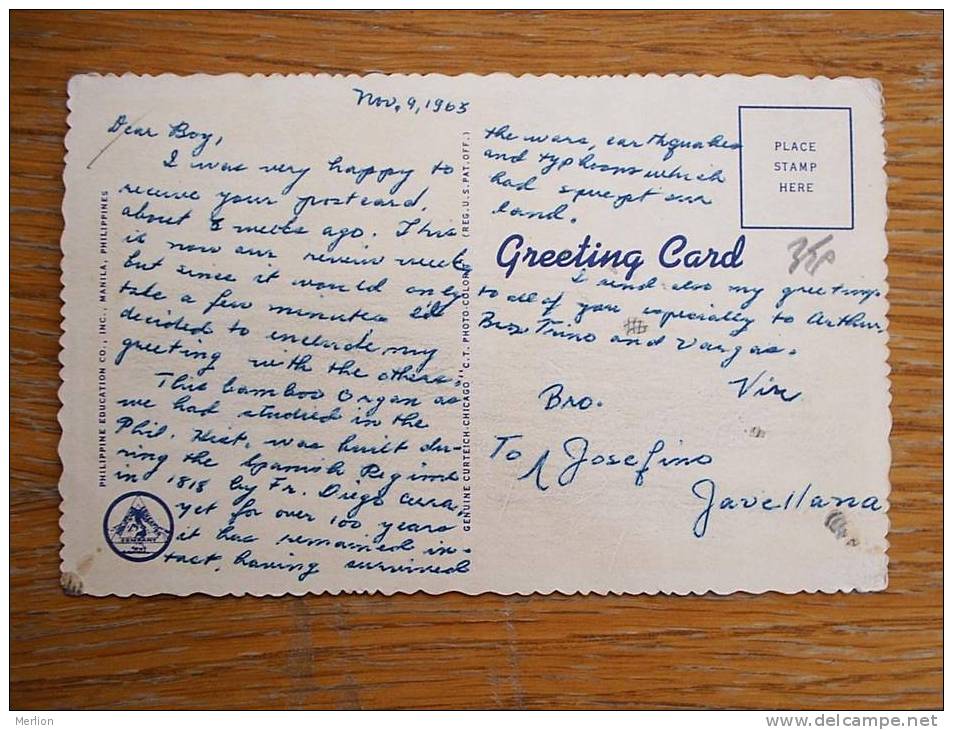 Nov. 9, 1963
Dear Boy,
I was very happy to
receive your postcard,
about 2 weeks ago. This
is now our review week,
but since it would only
take a few minutes I'd
decided to include my
greeting with the others.
This bamboo organ as
we had studied in the
Phil. Hist. was built du-
ring the Spanish Regime
in 1818 by Fr. Diego Cerra,
yet for over 100 years
it has remained in-
tact, having survived
the wars, earthquakes
and typhoons which
had swept our
land.
PLACE
STAMP
HERE
Greeting Card
I send also my greetings
to all of you especially to Arthur,
Bros Trino and Vargas.
Vix
Bro.
To Josefino
Javellana
PHILIPPINE EDUCATION CO., INC., MANILA, PHILIPPINES
GENUINE CURTEICH-CHICAGO "C.T. PHOTO-COLORIT" (REG. U.S. PAT. OFF.)
COMPANY
Merlion
http://www.delcampe.net